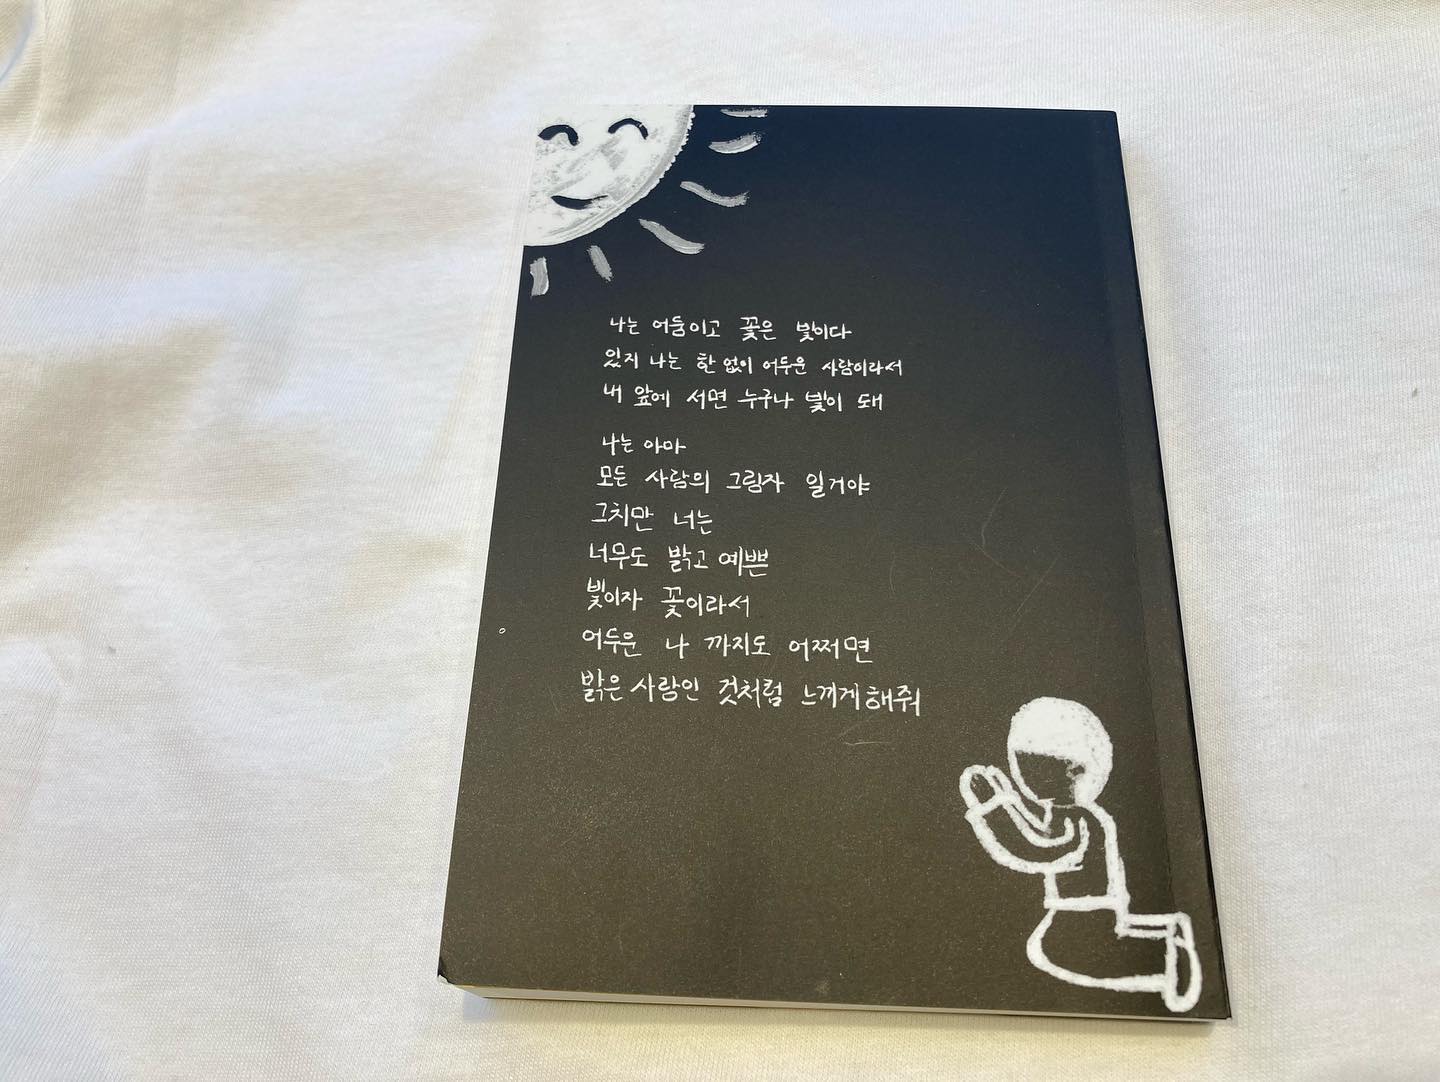 나는 어둠이고 꽃은 빛이다
있지 나는 한 없이 어두운 사람이라서
내 앞에 서면 누구나 빛이 돼
나는 아마
모든 사람의 그림자 일거야
그치만 너는
너무도 밝고 예쁜
빛이자 꽃이라서
어두운 나 까지도 어쩌면
밝은 사람인 것처럼 느끼게해줘